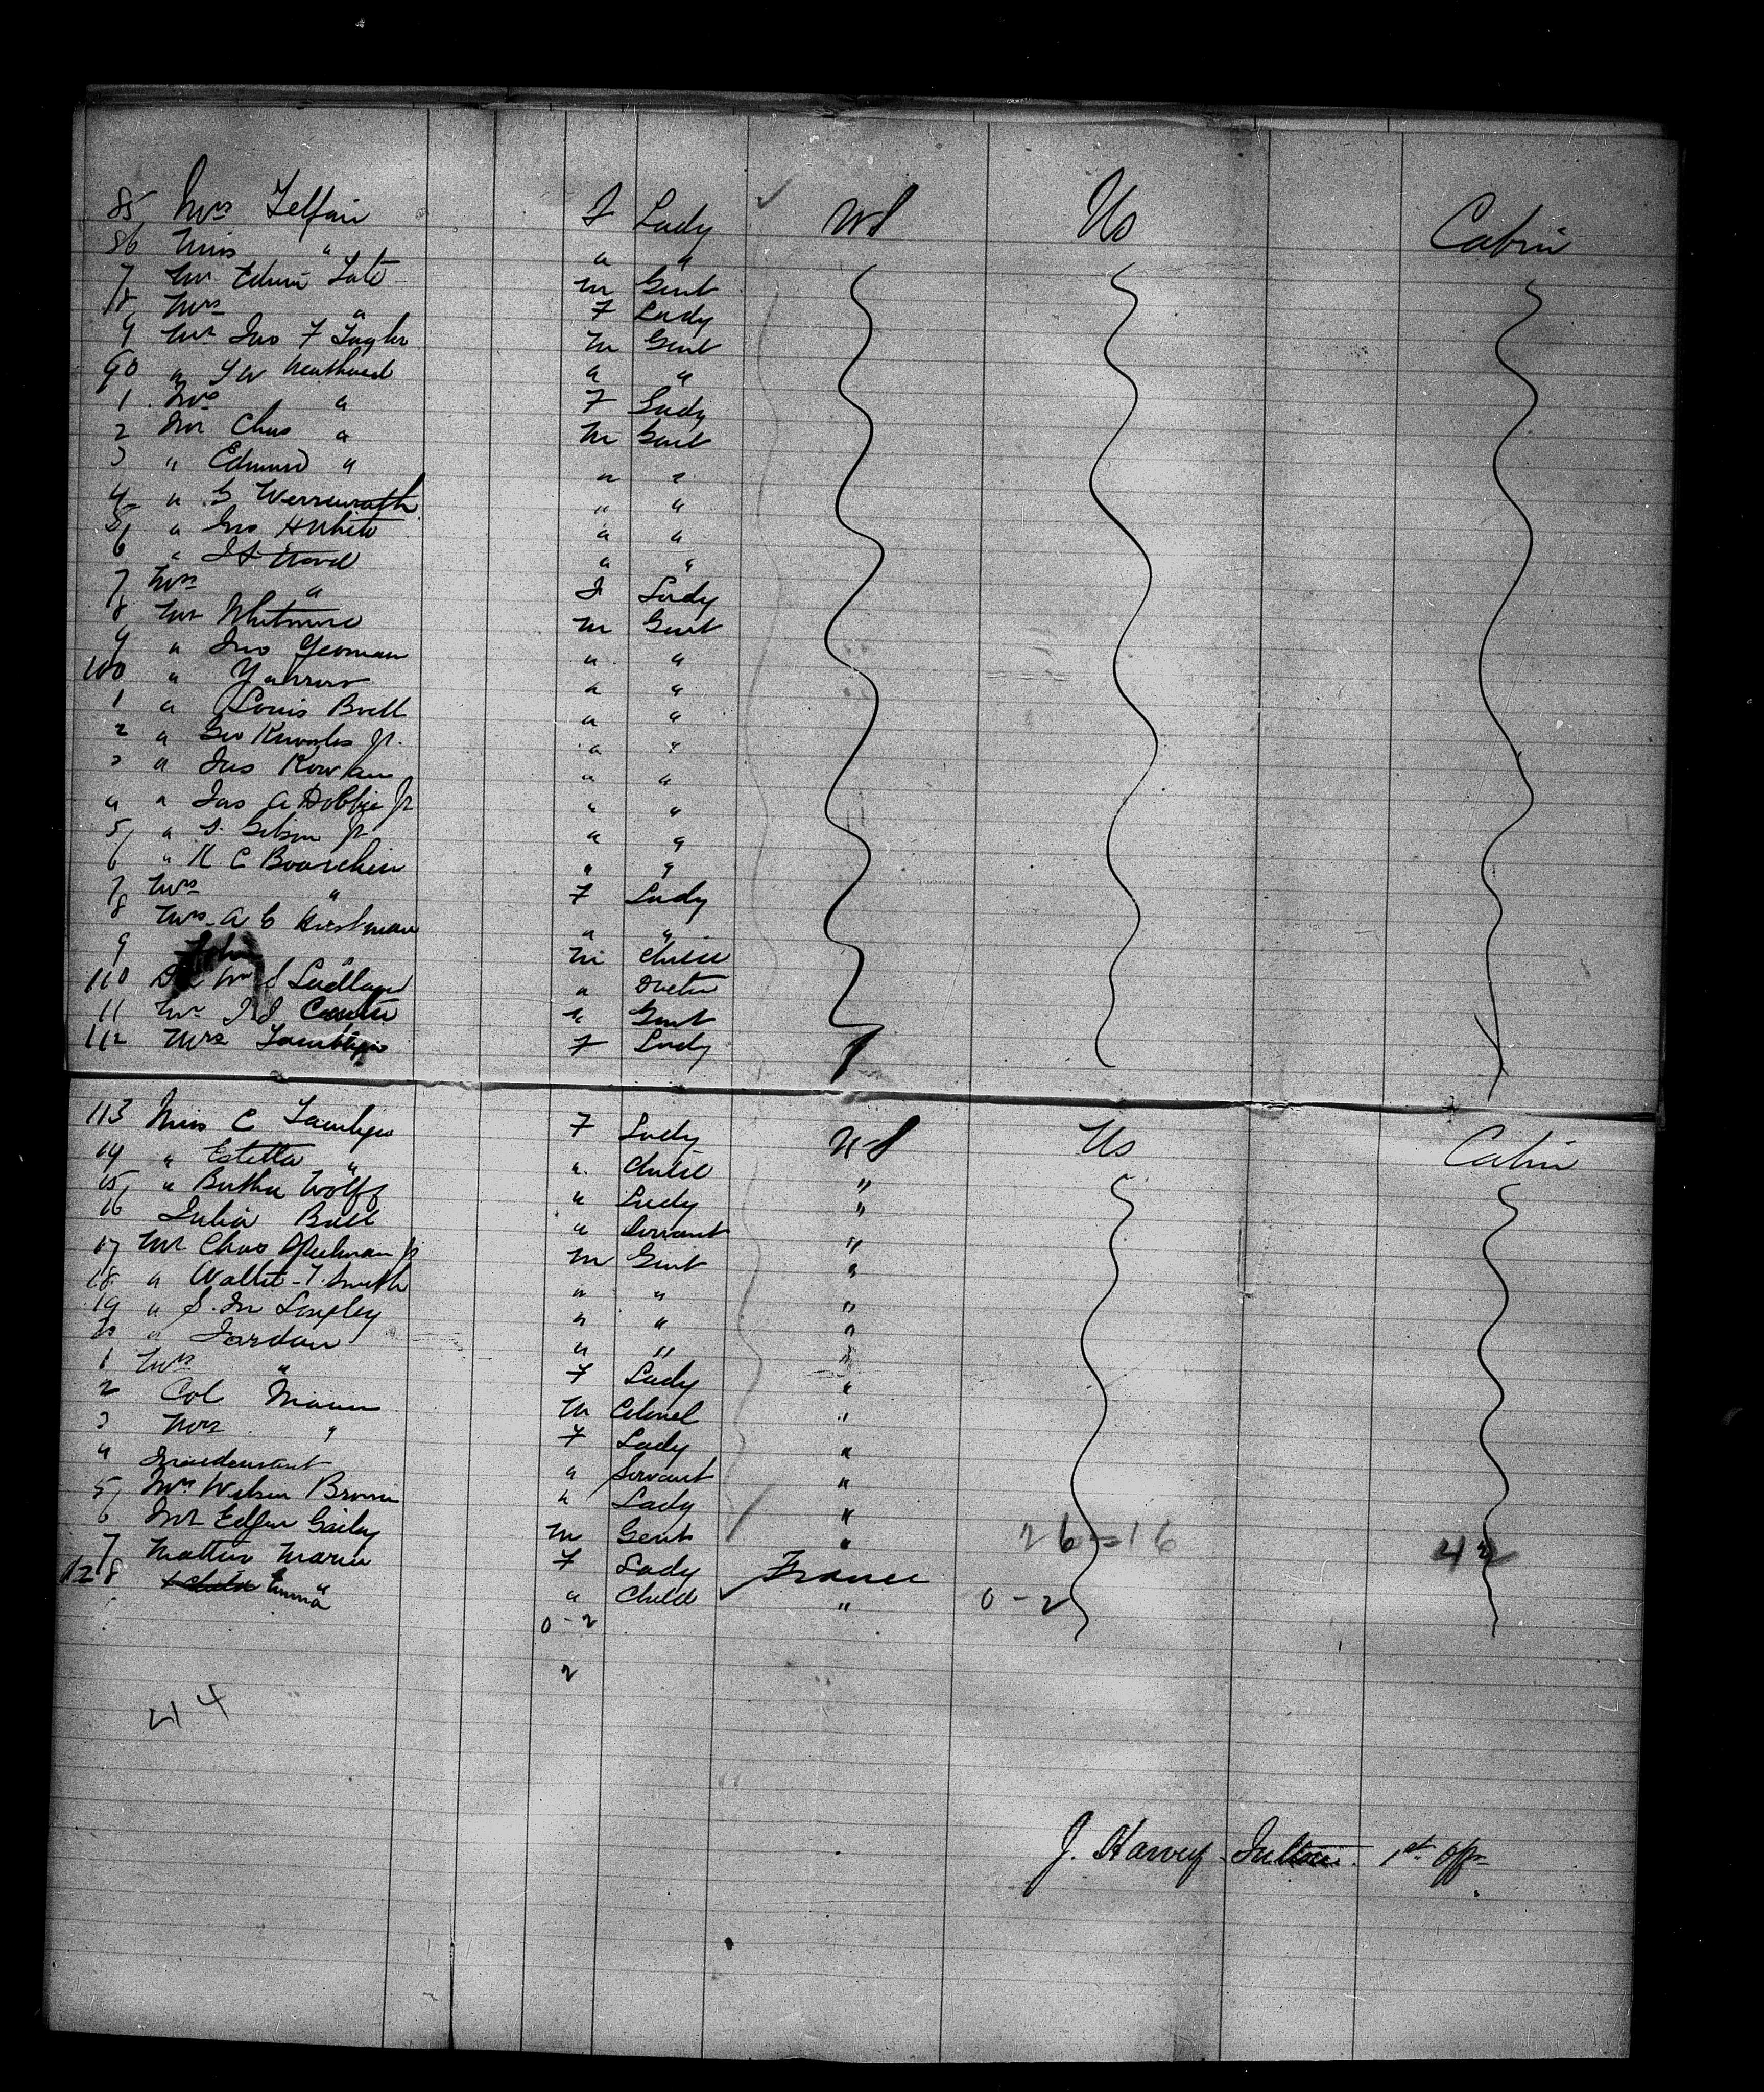 85 Mrs Telfair F Lady US Us Cabin
86 Miss " " "
7 Mr Edwin Tate M Gent
18 Mrs " F Lady
9 Mr Jno F Taylor M Gent
90 " " "
1 Mrs " F Lady
2 Mr Chas " M Gent
3 " Edmund " " "
4 " G Werrenrath " "
5 " Geo H White " "
6 " " "
7 Mrs " F Lady
8 Mr Whitmore M Gent
9 " Jno Yeoman " "
100 " " "
1 " Louis Brell " "
2 " Geo Knowles Jr. " "
3 " Jas Rowlan " "
4 " Jas A Dobbie Jr " "
5 " S. Gibson Jr " "
6 " H C Bourchier " "
7 Mrs " F Lady
8 Mrs A C Hirstman " "
9 John " M Child
110 Dr Wm S Ludlam " Doctor
11 Mr J J " Gent
112 Mrs F Lady
113 Miss C F Lady US Us Cabin
14 " Estella " " Child "
15 " Bertha Wolff " Lady "
16 Julia Bell " Servant "
17 Mr Chas Jr M Gent "
18 " Walter T. Smith " " "
19 " S. M Langley " " "
20 " Jordan " " "
1 Mrs " F Lady "
2 Col Mann M Colonel "
3 Mrs " F Lady "
4 Maidservant " Servant "
5 Mrs Wilson Brown " Lady "
6 Mr Edgar Gailey M Gent " 26=16 42
7 Marie F Lady France
128 Emma " " Child " 0-2
0-2
2
44
J. Harvey 1st Offr